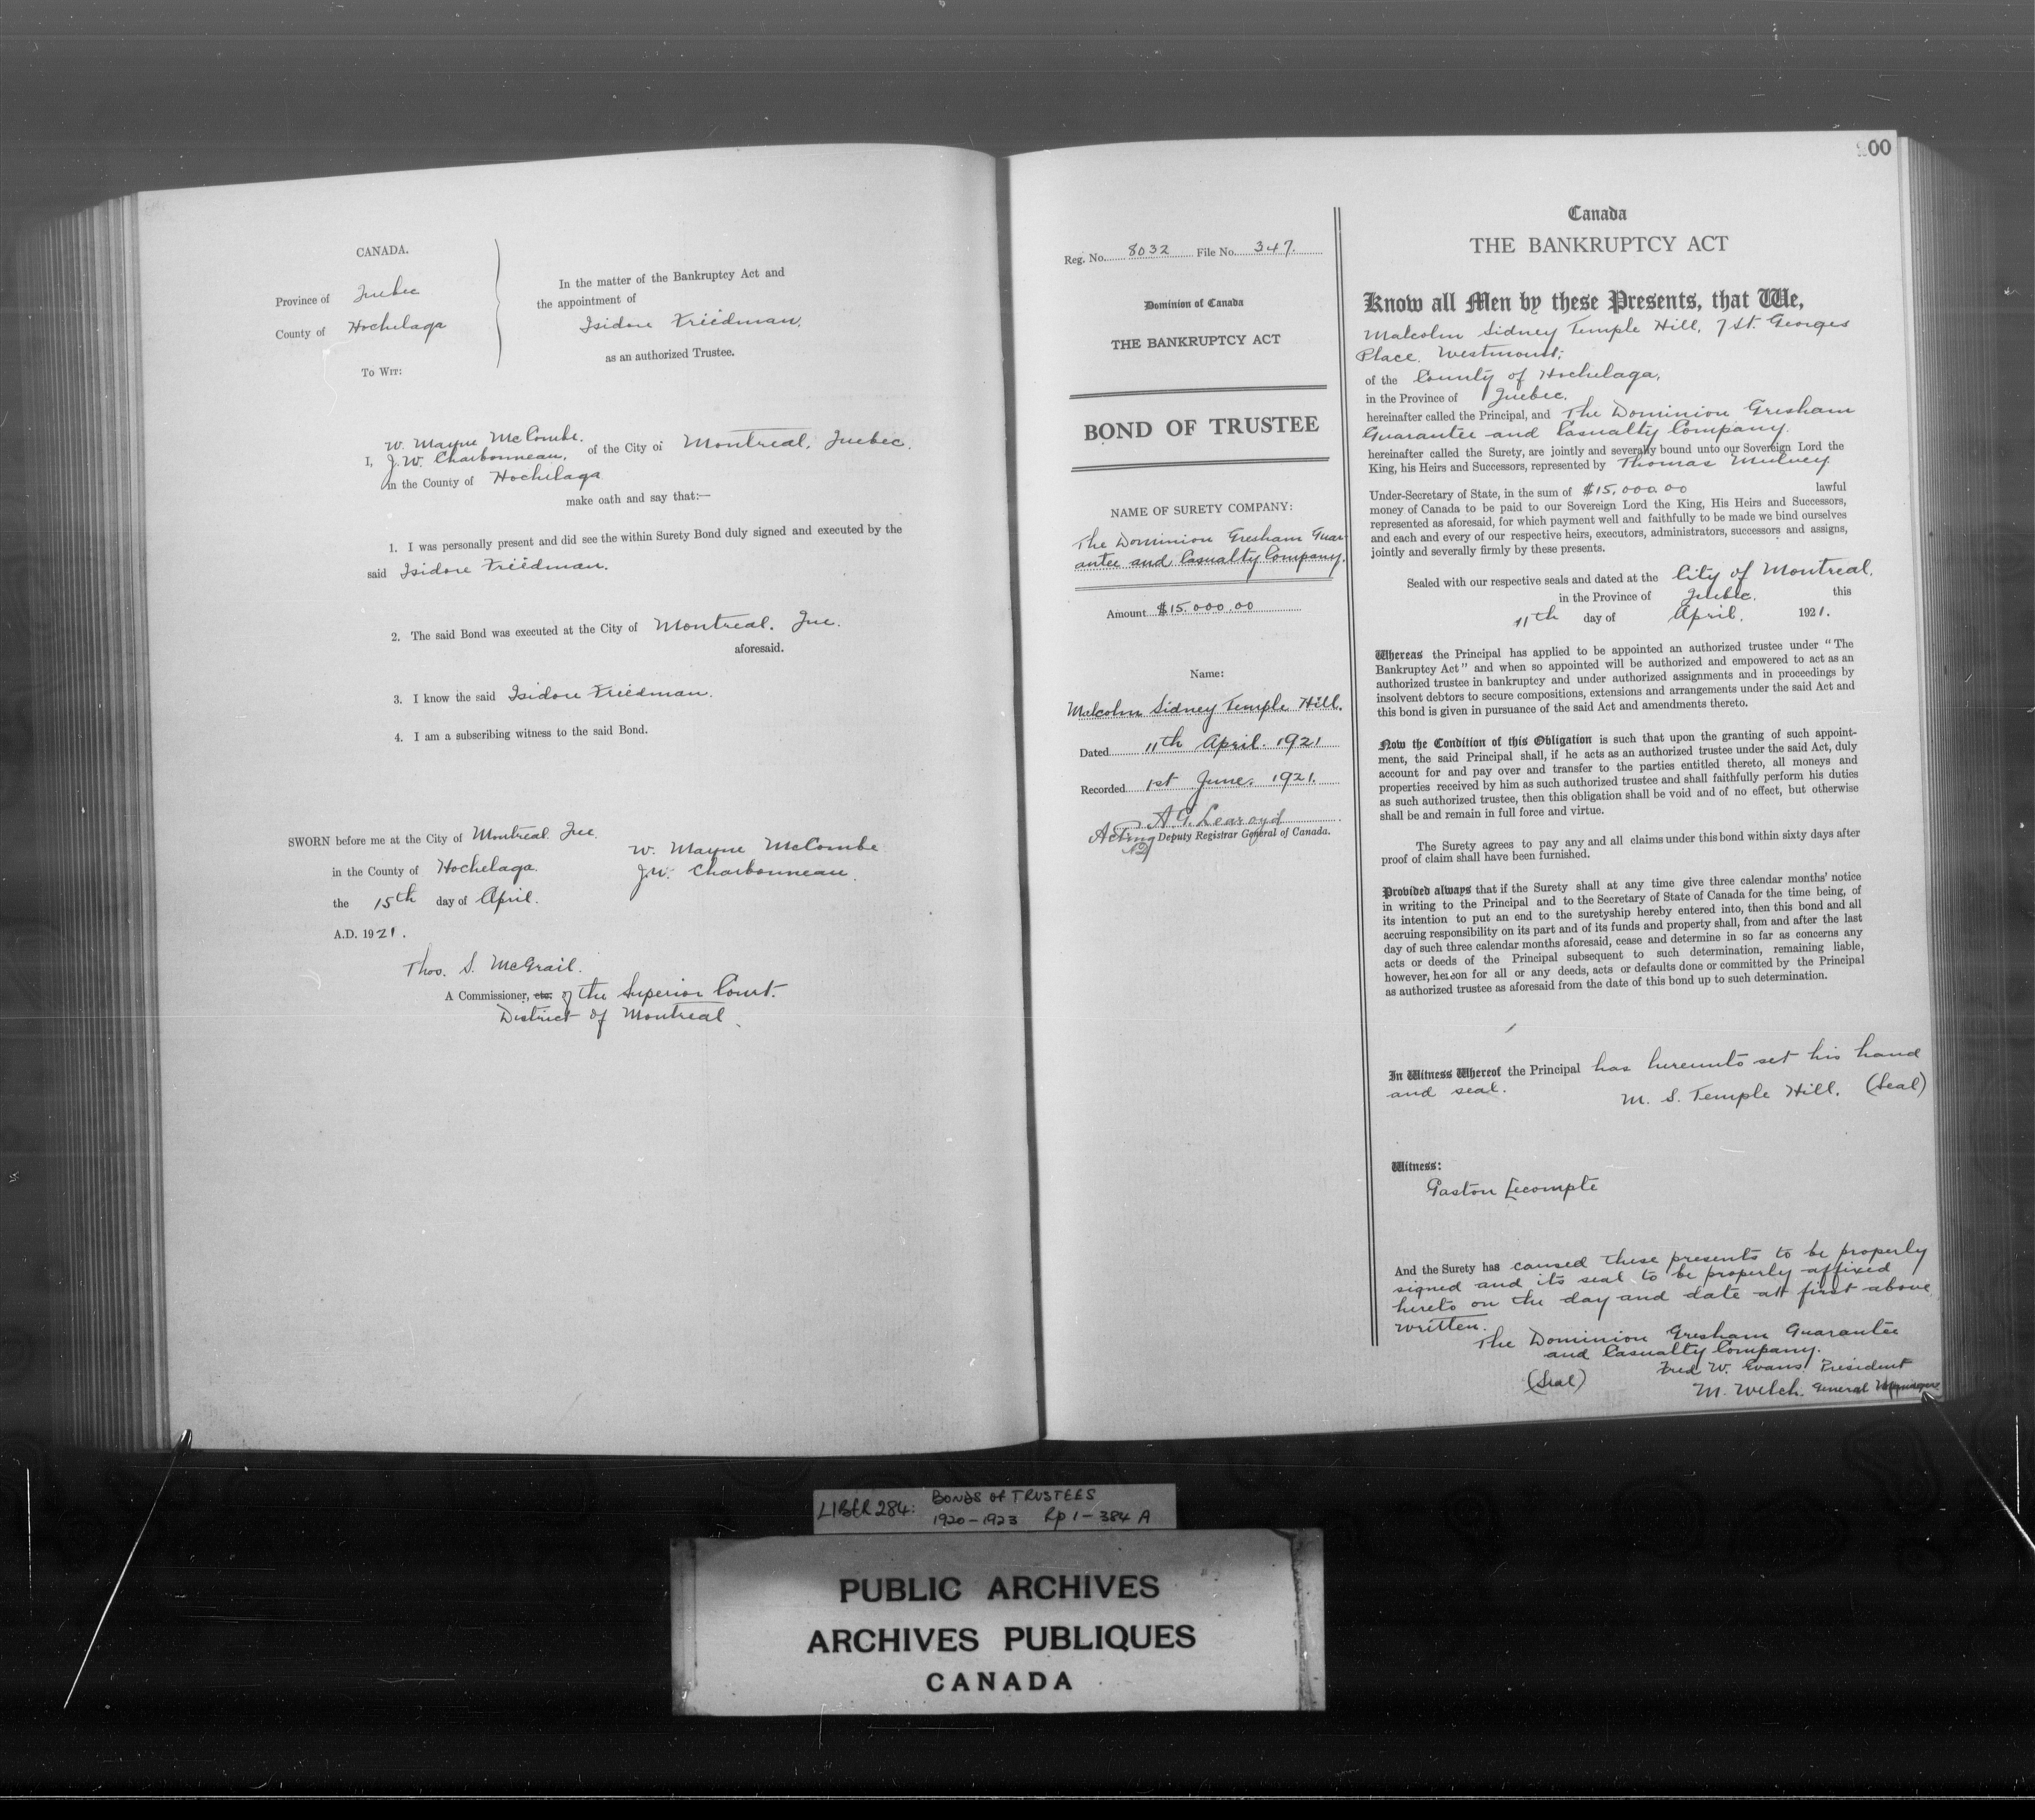 CANADA.
Province of Quebec
County of Hochelaga
To Wit:
In the matter of the Bankruptcy Act and
the appointment of
Isidore Friedman.
as an authorized Trustee.
W. Mayne McCombe.
I, J.W. Charbonneau, of the City of Montreal, Quebec,
in the County of Hochelaga
make oath and say that:—
1. I was personally present and did see the within Surety Bond duly signed and executed by the
said Isidore Friedman.
2. The said Bond was executed at the City of Montreal. Que.
aforesaid.
3. I know the said Isidore Friedman.
4. I am a subscribing witness to the said Bond.
SWORN before me at the City of Montreal Que.
in the County of Hochelaga.
the 15th day of April.
A.D. 1921.
W. Mayne McCombe
J.W. Charbonneau.
Thos. S. McGrail.
A Commissioner, etc. of the Superior Court.
District of Montreal.
Reg. No. 8032 File No. 347.
Dominion of Canada
THE BANKRUPTCY ACT
BOND OF TRUSTEE
NAME OF SURETY COMPANY:
The Dominion Gresham Guar-
antee and Casualty Company.
Amount $15.000.00
Name:
Malcolm Sidney Temple Hill.
Dated 11th April. 1921
Recorded 1st June. 1921.
A.G. Learoyd
Acting Deputy Registrar General of Canada.
00
Canada
THE BANKRUPTCY ACT
Know all Men by these Presents, that We,
Malcolm Sidney Temple Hill, 7 St. Georges
Place. Westmount;
of the County of Hochelaga,
in the Province of Quebec.
hereinafter called the Principal, and The Dominion Gresham
Guarantee and Casualty Company.
hereinafter called the Surety, are jointly and severally bound unto our Sovereign Lord the
King, his Heirs and Successors, represented by Thomas Mulvey
Under-Secretary of State, in the sum of $15,000.00 lawful
money of Canada to be paid to our Sovereign Lord the King, His Heirs and Successors,
represented as aforesaid, for which payment well and faithfully to be made we bind ourselves
and each and every of our respective heirs, executors, administrators, successors and assigns,
jointly and severally firmly by these presents.
Sealed with our respective seals and dated at the City of Montreal,
in the Province of Quebec. this
11th day of April. 1921.
Whereas the Principal has applied to be appointed an authorized trustee under "The
Bankruptcy Act" and when so appointed will be authorized and empowered to act as an
authorized trustee in bankruptcy and under authorized assignments and in proceedings by
insolvent debtors to secure compositions, extensions and arrangements under the said Act and
this bond is given in pursuance of the said Act and amendments thereto.
Now the Condition of this Obligation is such that upon the granting of such appoint-
ment, the said Principal shall, if he acts as an authorized trustee under the said Act, duly
account for and pay over and transfer to the parties entitled thereto, all moneys and
properties received by him as such authorized trustee and shall faithfully perform his duties
as such authorized trustee, then this obligation shall be void and of no effect, but otherwise
shall be and remain in full force and virtue.
The Surety agrees to pay any and all claims under this bond within sixty days after
proof of claim shall have been furnished.
Provided always that if the Surety shall at any time give three calendar months' notice
in writing to the Principal and to the Secretary of State of Canada for the time being, of
its intention to put an end to the suretyship hereby entered into, then this bond and all
accruing responsibility on its part and of its funds and property shall, from and after the last
day of such three calendar months aforesaid, cease and determine in so far as concerns any
acts or deeds of the Principal subsequent to such determination, remaining liable,
however, hereon for all or any deeds, acts or defaults done or committed by the Principal
as authorized trustee as aforesaid from the date of this bond up to such determination.
In Witness Whereof the Principal has hereunto set his hand
and seal.
M. S. Temple Hill. (Seal)
Witness:
Gaston Lecompte
And the Surety has caused these presents to be properly
signed and its seal to be properly affixed
hereto on the day and date at first above
written.
The Dominion Gresham Guarantee
and Casualty Company.
(Seal) Fred W. Evans President
M. Welch. General Manager
LIBER 284: BONDS OF TRUSTEES
1920-1923 Rp 1-384 A
PUBLIC ARCHIVES
ARCHIVES PUBLIQUES
CANADA